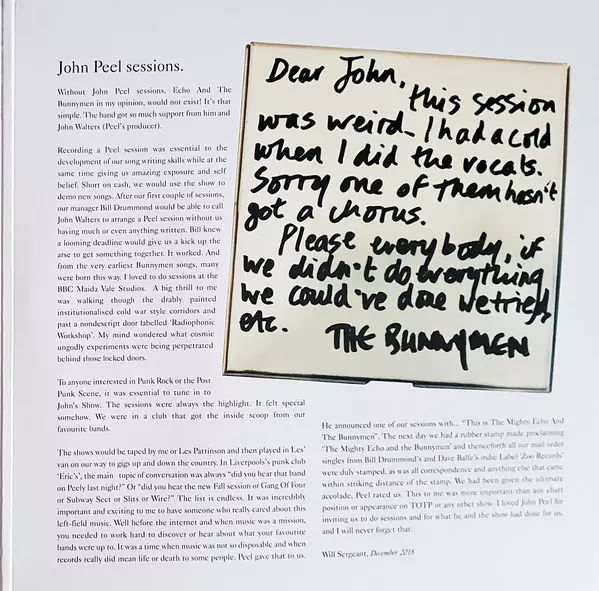 John Peel sessions.
Without John Peel sessions, Echo And The
Bunnymen in my opinion, would not exist! It's that
simple. The band got so much support from him and
John Walters (Peel's producer).
Recording a Peel session was essential to the
development of our song writing skills while at the
same time giving us amazing exposure and self
belief. Short on cash, we would use the show to
demo new songs. After our first couple of sessions,
our manager Bill Drummond would be able to call
John Walters to arrange a Peel session without us
having much or even anything written. Bill knew
a looming deadline would give us a kick up the
arse to get something together. It worked. And
from the very earliest Bunnymen songs, many
were born this way. I loved to do sessions at the
BBC Maida Vale Studios. A big thrill to me
was walking though the drably painted
institutionalised cold war style corridors and
past a nondescript door labelled 'Radiophonic
Workshop'. My mind wondered what cosmic
ungodly experiments were being perpetrated
behind those locked doors.
To anyone interested in Punk Rock or the Post
Punk Scene, it was essential to tune in to
John's Show. The sessions were always the highlight. It felt special
somehow. We were in a club that got the inside scoop from our
favourite bands.
The shows would be taped by me or Les Pattinson and then played in Les'
van on our way to gigs up and down the country. In Liverpools's punk club
'Eric's', the main topic of conversation was always "did you hear that band
on Peely last night?" Or "did you hear the new Fall session or Gang Of Four
or Subway Sect or Slits or Wire?" The list is endless. It was incredibly
important and exciting to me to have someone who really cared about this
left-field music. Well before the internet and when music was a mission,
you needed to work hard to discover or hear about what your favourite
bands were up to. It was a time when music was not so disposable and when
records really did mean life or death to some people. Peel gave that to us.
Dear John,
this session
was weird_ I had a cold
when I did the vocals.
Sorry one of them hasn't
got a chorus.
Please everybody, if
we didn't do everything
we could've done we tried,
etc.
THE BUNNYMEN
He announced one of our sessions with... "This is The Mighty Echo And
The Bunnymen". The next day we had a rubber stamp made proclaiming
'The Mighty Echo and the Bunnymen' and thenceforth all our mail order
singles from Bill Drummond's and Dave Balfe's indie Label 'Zoo Records'
were duly stamped, as was all correspondence and anything else that came
within striking distance of the stamp. We had been given the ultimate
accolade, Peel rated us. This to me was more important than any chart
position or appearance on TOTP or any other show. I loved John Peel for
inviting us to do sessions and for what he and the show had done for us,
and I will never forget that.
Will Sergeant, December 2018